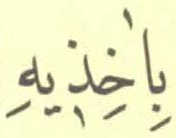 بِاٰخِذِيهِ